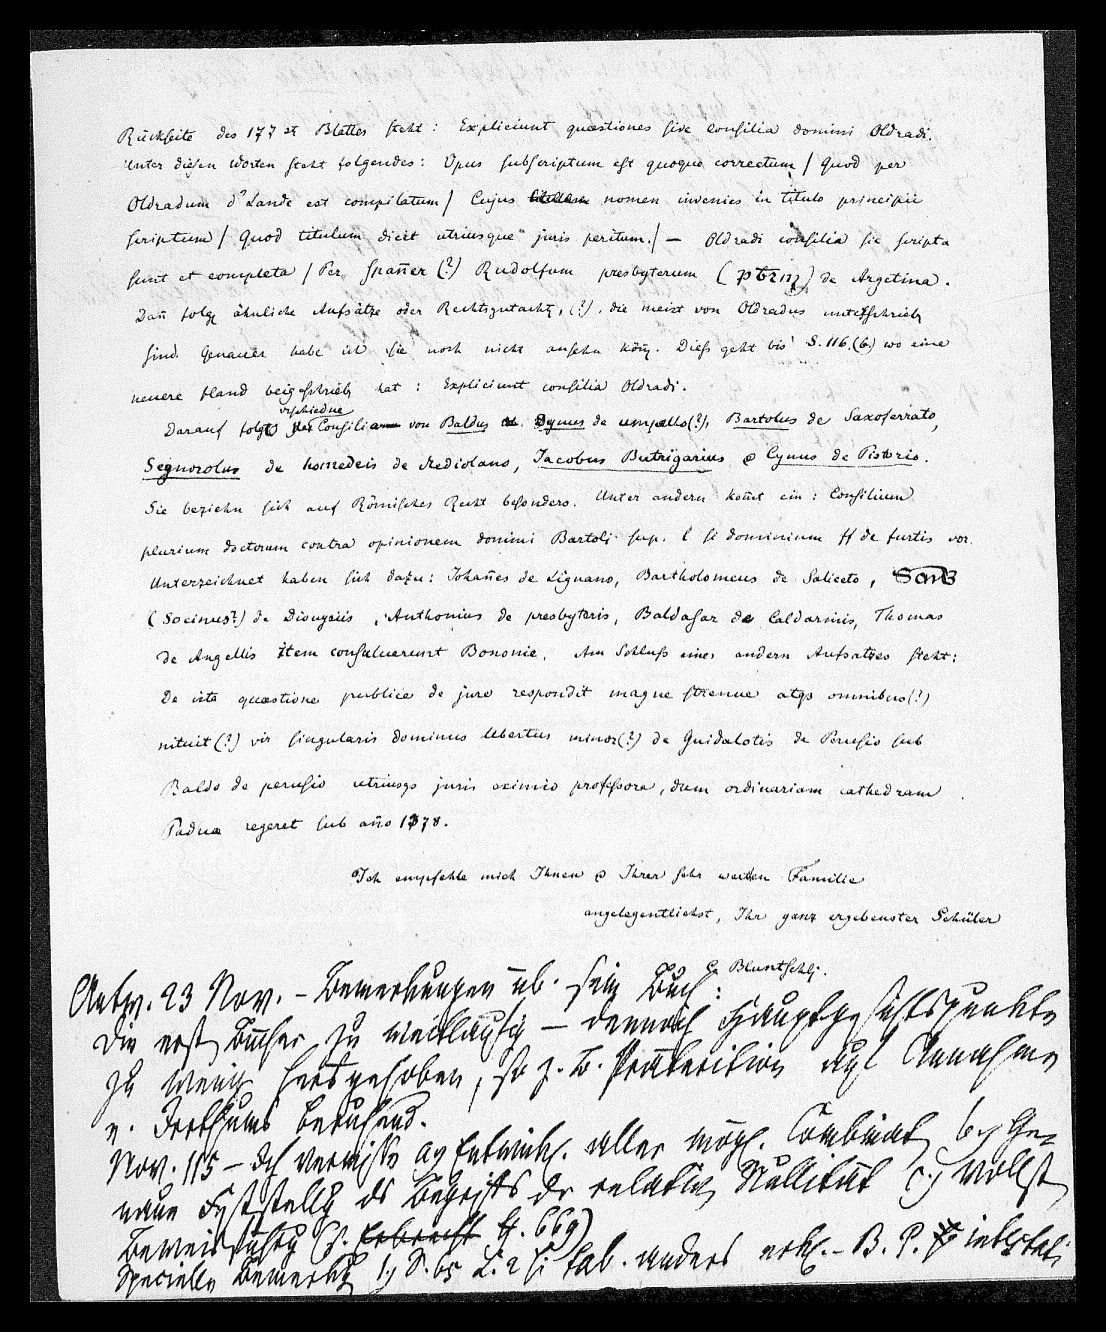 Rückseite des 177 st Blattes steht: Expliciunt quæstiones sive consilia domini Oldradi.
Unter diesen Worten steht folgendes: Opus subscriptum est quoque correctum / Quod per
Oldradum d' Lande est compilatum / Cujus nomen invenies in titulo principii
scriptum / Quod titulum dicit utriusque juris peritum. / — Oldradi consilia sic scripta
sunt et completa / Per (?) Rudolfum presbyterum de Argetina.
Dañ folg ähnliche Aufsätze oder Rechtsgutacht, (?). die meist von Oldradus unterschrieb
sind. Genauer habe ich sie noch nicht ansehn köñ. Diess geht bis S. 116. (b) wo eine
neuere Hand beigeschrieb hat: Expliciunt consilia Oldradi.
Darauf folg verschiedne Consilia von Baldus Dynus de (?), Bartolus de Saxoferrato,
Segnorolus de homedeis de Mediolano, Jacobus Butrigarius & Cynus de Pistorio.
Sie beziehn sich auf Römisches Recht besonders. Unter andern kom̄t ein: Consilium
plurium doctorum contra opinionem domini Bartoli sup. l si dominium ff de furtis vor.
Unterzeichnet haben sich dazu: Johañes de Lignano, Bartholomeus de Saliceto,
(Socinus?) de Dionysiis, Anthonius de presbyteris, Baldasar de Caldarinis, Thomas
de Angellis Item consuluerunt Bononie. Am Schluss eines andern Aufsatzes steht:
De ista quæstione publice de jure respondit magne strenue atqs omnibus (?)
nituit (?) vir singularis dominus Ubertus minor (?) de Guidalotis de Perusio sub
Baldo de perusio utriusqs juris eximio professore, dum ordinariam cathedram
Paduæ regeret sub año 1378.
Ich empfehle mich Ihnen & Ihrer sehr werthen Familie
angelegentlichst, Ihr ganz ergebenster Schüler
C. Bluntschli.
Antw. 23 Nov. – Bemerkungen üb. sein Buch:
Die erst Bücher zu weitläufig – dennoch Hauptgesichtspunkte
zu wenig hervorgehoben, so z. B. Präterition Annahme
e. Irrthums beruhend.
Nov. 115 – Ich vermisse a) Entwickl. aller mögl. Combinat b) Ge-
naue Feststellg ds Begriffs der relativ Nullität c) vollst
Beweisführg (z. S. 669)
Specielle Bemerkg 1) S. 65 L. 2 anders erkl. – B. P. intestati